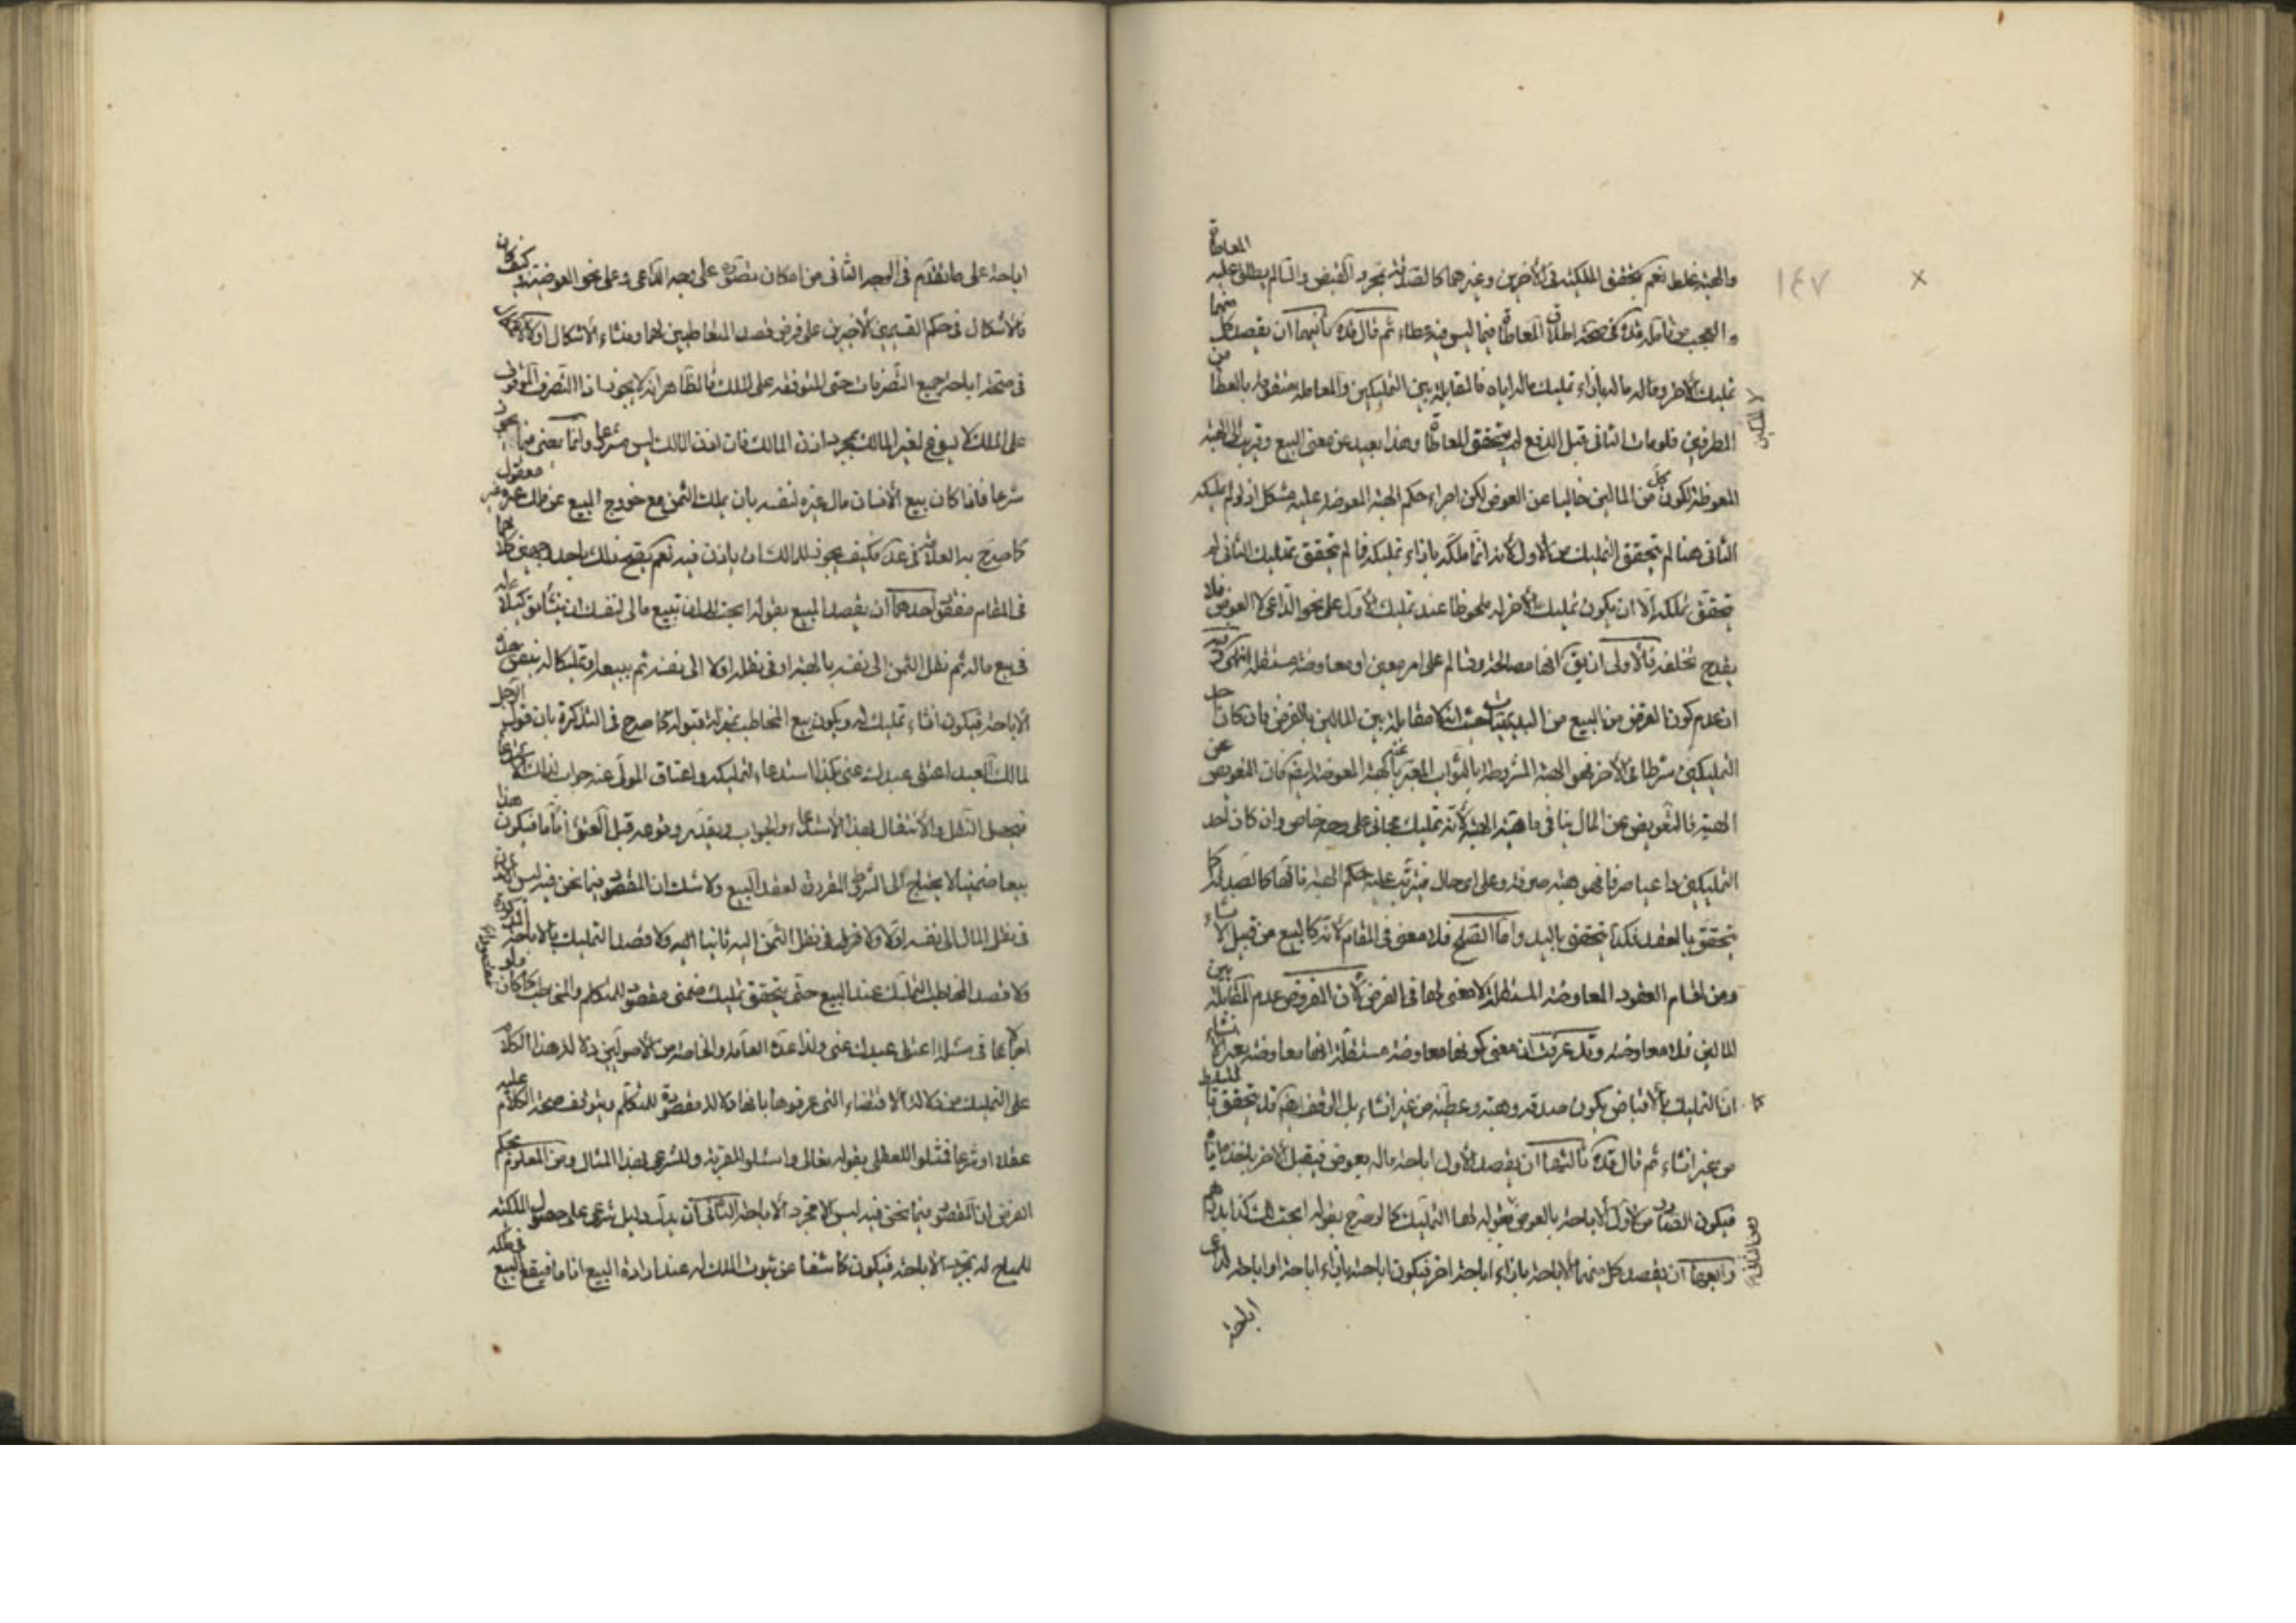 والهبة غلط نعم يتحقق الملكية في الأخرين وغيرهما كالصدقة بمجرد القبض والسالم يطلق عليه المعاطاة
و العجب من تأمله قده في صحة اطلاق المعاطاة فيما ليس فيه عطاء ثم قال قده ثانيهما ان يقصد كل منهما
تمليك الاخر وماله ماله بازاء تمليك ماله اياه فالمقابلة بين التمليكين والمعاملة متقومة بالعطاء من
الطرفين فلو مات الثاني قبل الدفع لم يتحقق المعاطاة وهذا بعيد عن معنى البيع وقريب الى الهبة
المعوضة لكون كل من المالين خاليا عن العوض لكن اجراء حكم الهبة المعوضة عليه مشكل اذ لو لم يملكه
الثاني هنا لم يتحقق التمليك من الاول لانه انما ملكه بازاء تمليكه فما لم يتحقق تمليك الثاني لم
يتحقق تملكه الا ان يكون تمليك الاخر له ملحوظا عند تمليك الاول على نحو الداعي لا العوض فلا
يقدح تخلفه فالاولى ان يق انها مصالحة وتسالم على امر معين او معاوضة مستقلة انتهى وفيه
ان عدم كون الفرض من البيع من البديهيات حيث انه لا مقابلة بين المالين بالفرض فان كان احد
التمليكين شرطا في الاخر فهو الهبة المشروطة بالثواب المعبر عنها بالهبة المعوضة ايضا فان التعويض عن
الهبة فالتعويض عن المال ينافي ماهية الهبة لانه تمليك مجاني على وجه خاص وان كان احد
التمليكين داعيا صرفا فهو هبة صرفة وعلى اي حال فيترتب عليه حكم الهبة فانها كالصدقة كما
يتحقق بالعقد فكذا يتحقق باليد واما الصلح فلا معنى في المقام لانه كالبيع من قبيل الانشاء
ومن اقسام العقود المعاوضة المستقلة لا معنى لها في الفرض لان المفروض عدم المقابلة بين
المالين فلا معاوضة وقد عرفت ان معنى كونها معاوضة مستقلة انها معاوضة بغير انشاء
كما ان التمليك بالاقباض يكون صدقة وهبة وعطية من غير انشاء بل الوقف ايضا قد يتحقق بالتسليط
من غير انشاء ثم قال قده ثالثها ان يقصد الاول اباحة ماله بعوض فيقبل الاخر باخذه اياه
فيكون الصادر من الاول الاباحة بالعوض بقوله لها التمليك كما لو صرح بقوله ابحت لك كذا بدرهم
ورابعها ان يقصد كل منهما الاباحة بازاء اباحة اخر فيكون اباحة بازاء اباحة او اباحة لداعي
اباحة
اباحة على ما تقدم في الوجه الثاني من امكان تصوره على وجه الداعي وعلى نحو العوضية وكيف كان
فالاشكال في حكم القسمين الاخيرين على فرض قصد المتعاطيين لهما ومنشاء الاشكال اولا الاشكال
في صحة اباحة جميع التصرفات حتى المتوقفة على الملك فالظاهر انه لا يجوز اذ التصرف الموقوف
على الملك لا يسوغ لغير المالك بمجرد اذن المالك فان اذن المالك ليس مشرعا وانما يمضي فيما يجوز
شرعا فاذا كان بيع الانسان مال غيره لنفسه بان يملك الثمن مع خروج المبيع عن ملك غيره غير معقول
كما صرح به العلامة في عد فكيف يجوز للمالك ان ياذن فيه نعم يصح ذلك باحد وجهين كلاهما
في المقام مفقود احدهما ان يقصد المبيح بقوله ابحت لك ان تبيع مالي لنفسك ان ينشأ توكيلا له
في بيع ماله ثم نقل الثمن الى نفسه بالهبة او في نقله اولا الى نفسه ثم بيعه او تمليكا له بنفس هذه
الاباحة فيكون انشاء تمليك له ويكون بيع المخاطب بمنزلة قبوله كما صرح في التذكرة بان قول الرجل
لمالك العبد اعتق عبدك عني بكذا استدعاء لتمليكه واعتاق المولى عنه جواب لذلك الاستدعاء
فيحصل النقل والانتقال بهذا الاستدعاء والجواب ويقدر وقوعه قبل العتق آنا ما فيكون هذا
بيعا ضمنيا لا يحتاج الى الشروط المقررة لعقد البيع ولا شك ان المقصود فيما نحن فيه ليس الاذن
في نقل المال الى نفسه اولا ولا في نقل الثمن اليه ثانيا ولا قصد التمليك بالاباحة المذكورة
ولا قصد المخاطب التملك عند البيع حتى يتحقق تمليك ضمني مقصود للمتكلم والمخاطب كما كان
اجماعا في مسئلة اعتق عبدك عني ولذا عد العامة والخاصة من الاصوليين دلالة هذا الكلام
على التمليك من دلالة الاقتضاء التي عرفوها بانها دلالة مقصودة للمتكلم يتوقف صحة الكلام عليه
عقلا او شرعا فمثلوا للعقلي بقوله تعالى واسئل القرية وللشرعي بهذا المثال ومن المعلوم بحكم
الفرض ان المقصود فيما نحن فيه ليس الا مجرد الاباحة الثاني ان يدل دليل شرعي على حصول الملكية
للمباح له بمجرد الاباحة فيكون كاشفا عن ثبوت الملك له عند ارادة البيع آنا ما فيقع البيع في ملكه